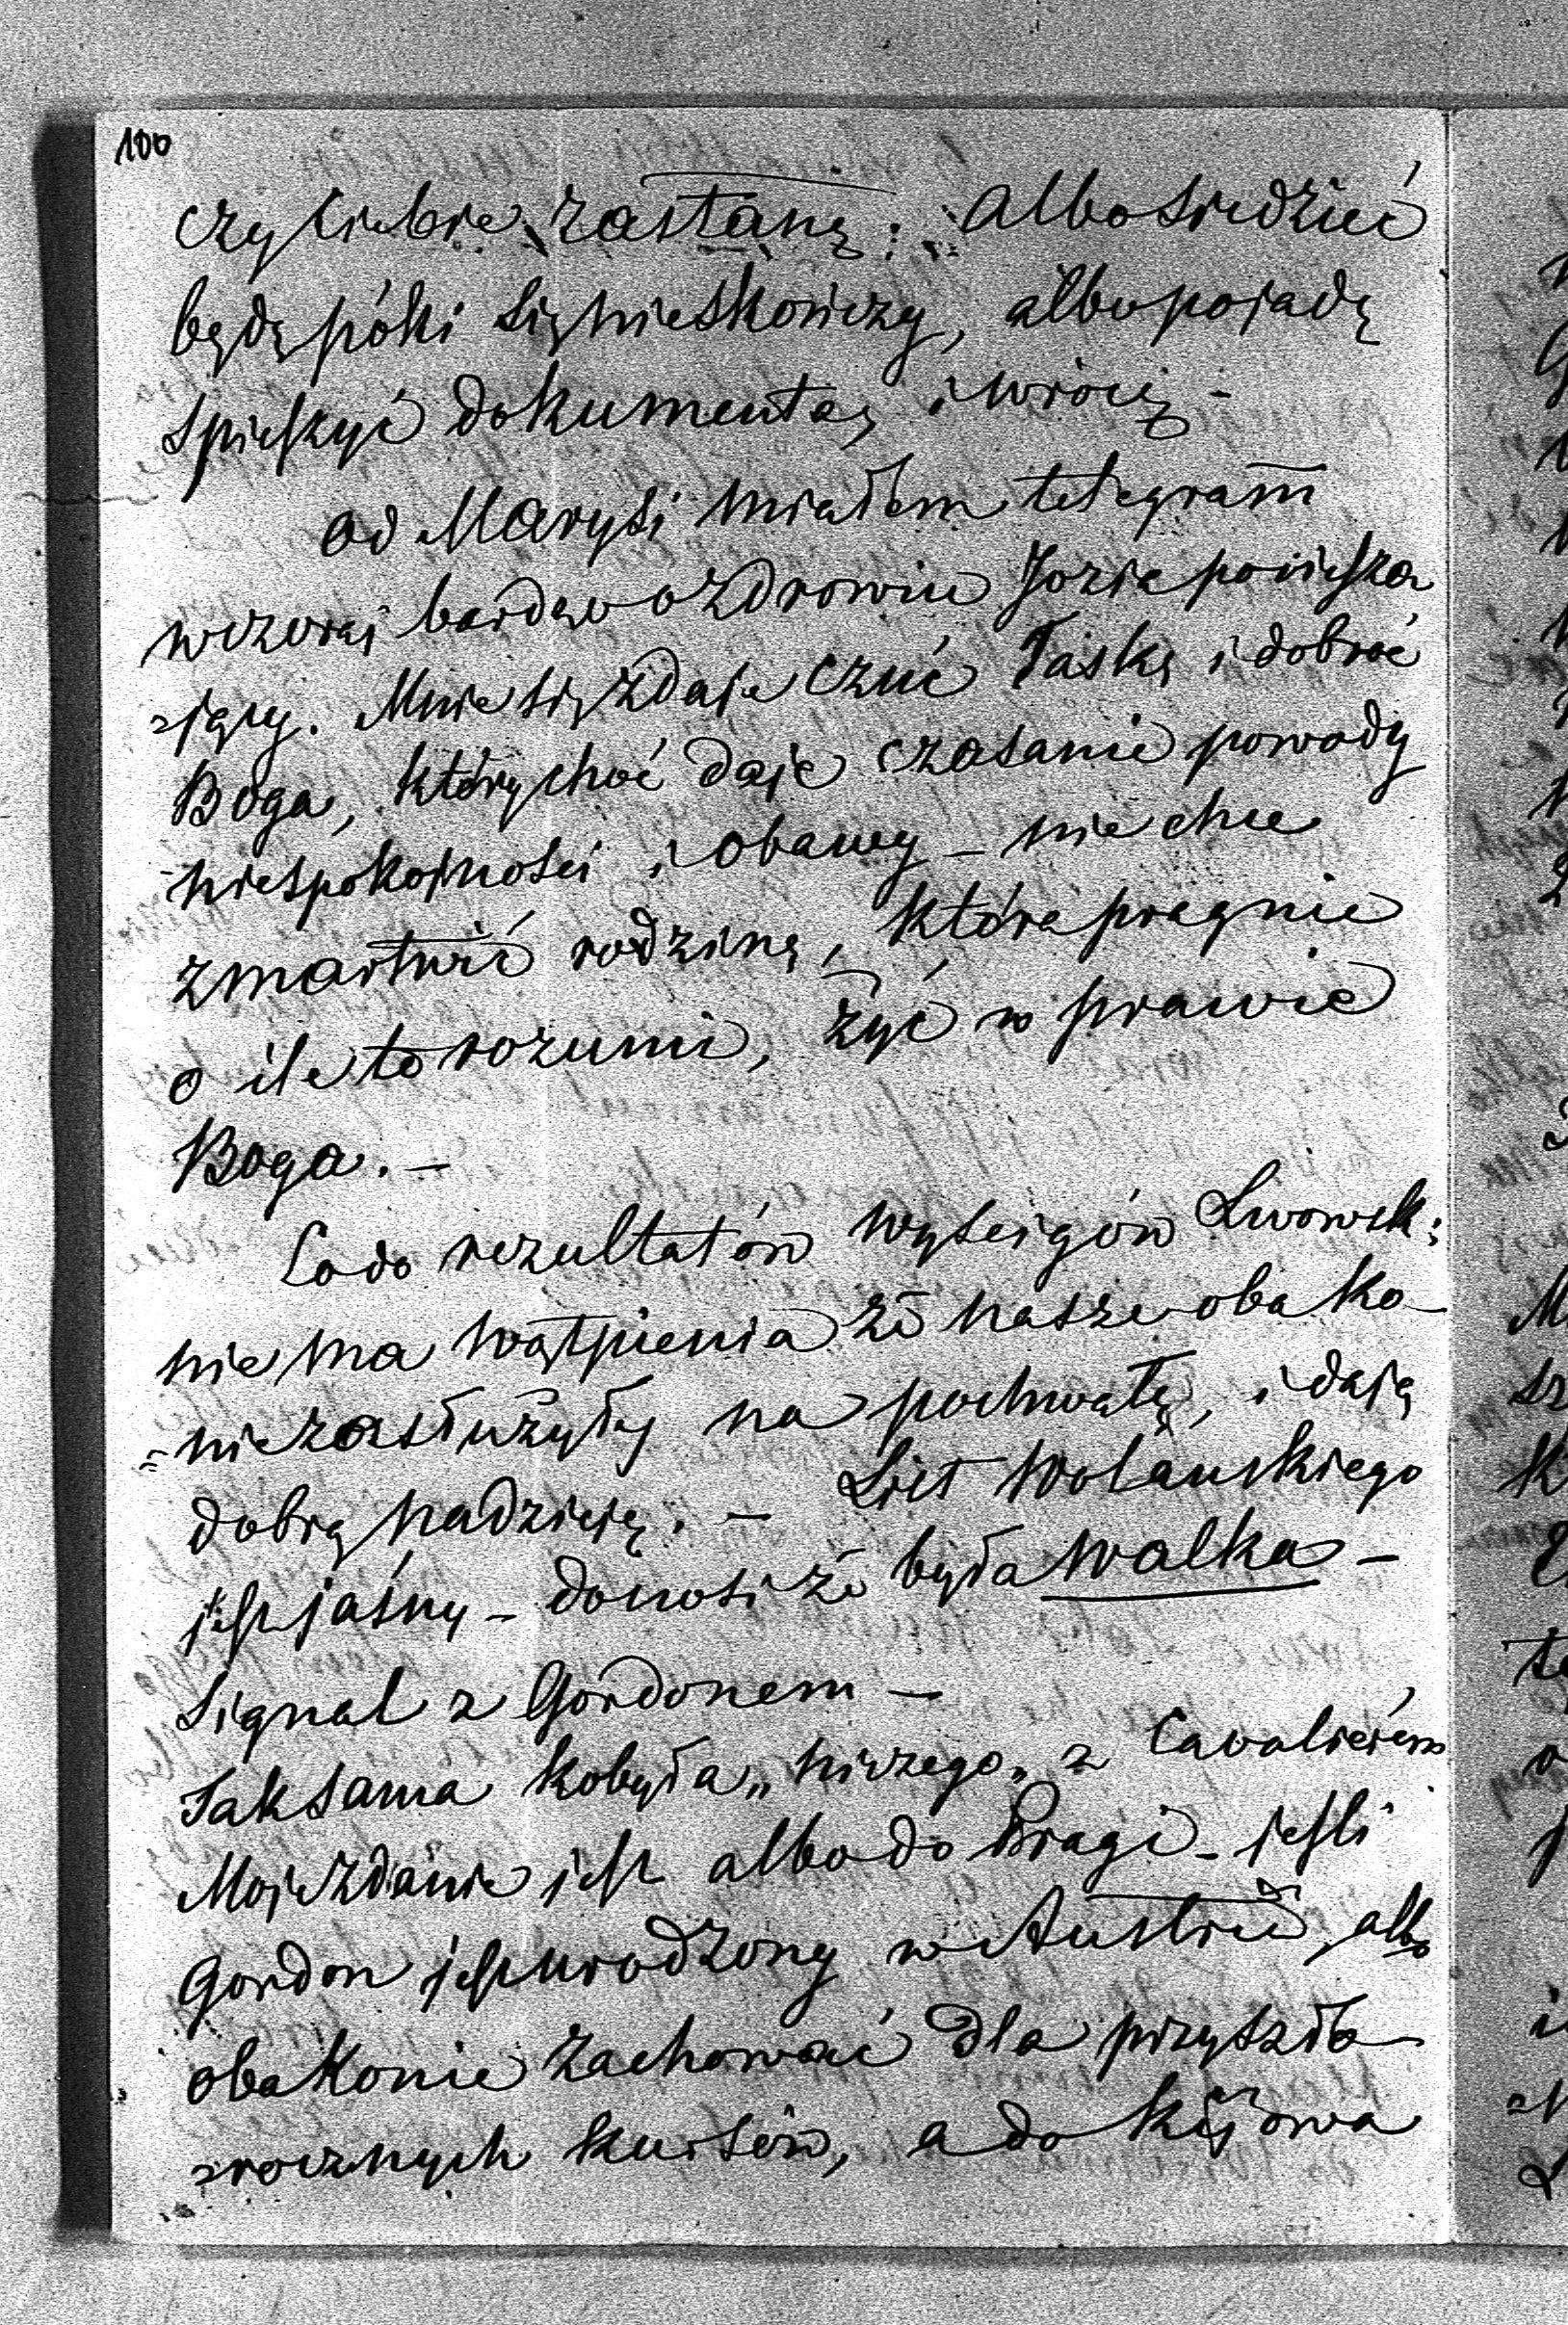 100
czy Ciebie zastanę: albo siedzieć
będę póki się nie skończy, albo pojadę
spieszyć dokumenta, i wrócę -
od Marysi miałem telegram
wczoraj bardzo o zdrowiu Jozia pociesza
=jący. Mnie się zdaje czuć Łaskę i dobroć
Boga, który choć daje czasami powody
niespokojności i obawy - nie chce
zmartwić rodzinę, która pragnie
o ile to rozumi, żyć w prawie
Boga. -
Co do rezultatów wyścigów Lwowsk:
nie ma wątpienia że nasze oba ko-
=nie zasłużyły na pochwałę, i dają
dobrą nadzieję. - List Wolańskiego
jest jaśny - donosi że była walka -
Signal z Gordonem -
Tak sama kobyła „niczego„ z Cavalierem
Moje zdanie jest albo do Pragi - jeśli
Gordon jest urodzony w Austrii, albo
oba konie zachować dla przyszło-
=rocznych kursów, a do Kijowa